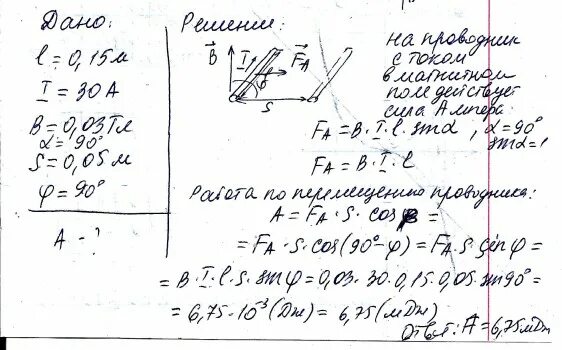 Дано:
l = 0,15 м
I = 30 А
B = 0,03 Тл
α = 90°
S = 0,05 м
φ = 90°
A - ?
Решение:
B I F_A
φ
S
на проводник
с током
в магнитном
поле действует
сила Ампера:
F_A = B · I · l · sinα , α = 90°
sinα = 1
F_A = B · I · l
Работа по перемещению проводника:
A = F_A · S · cos β =
= F_A · S · cos(90° - φ) = F_A · S · sin φ =
= B · I · l · S · sinφ = 0,03 · 30 · 0,15 · 0,05 · sin 90° =
= 6,75 · 10⁻³ (Дж) = 6,75 (мДж)
Ответ: A = 6,75 мДж